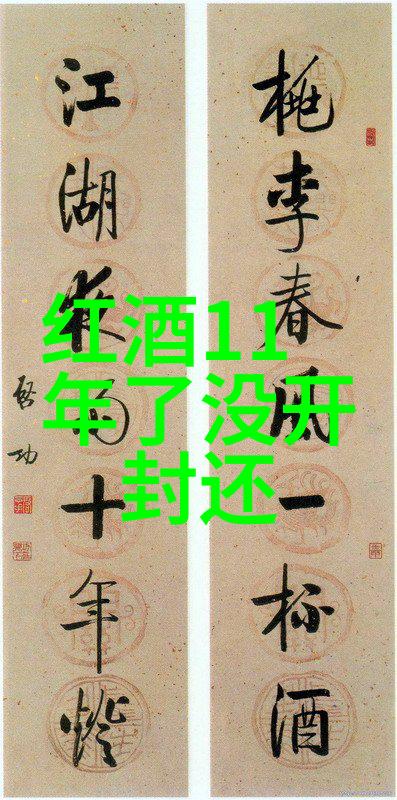 桃李春风一杯酒
江湖夜雨十年灯
启功
红酒11
年了没开
封还